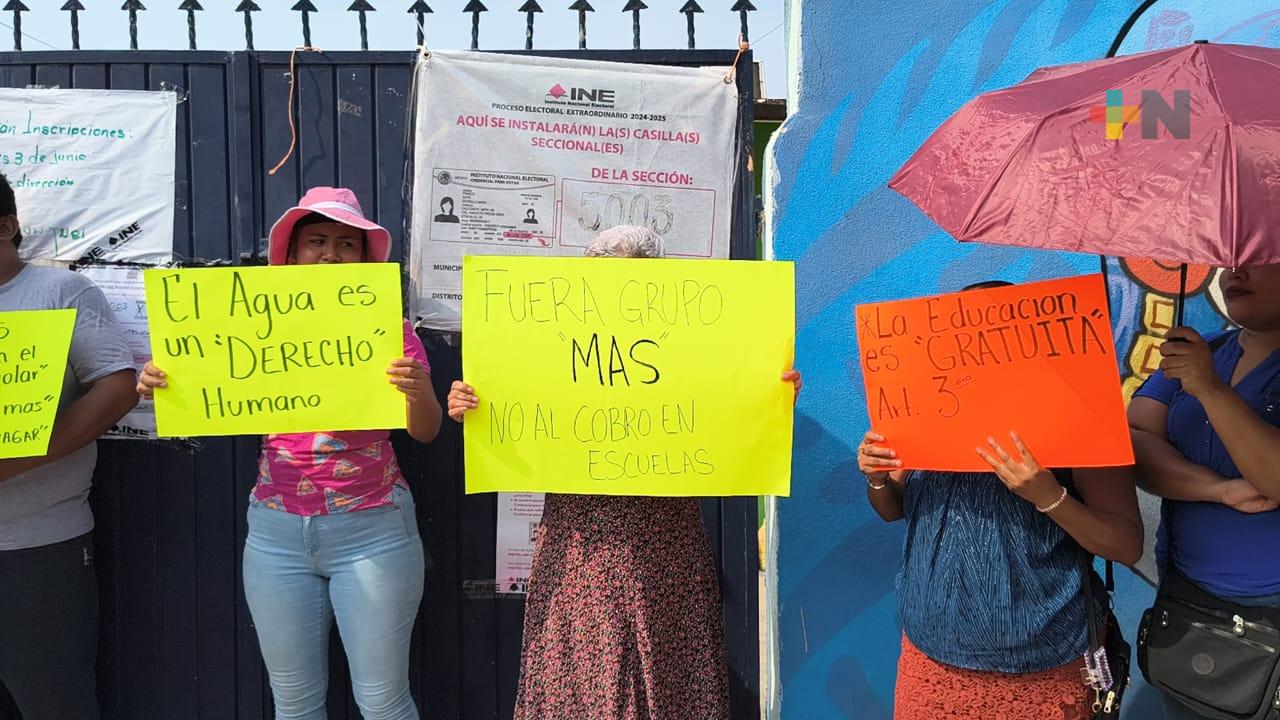 an Inscripciones:
s 3 de junio
dirección
INE
n el
olar"
mas"
AGAR"
El Agua es
un "DERECHO"
Humano
INE
Instituto Nacional Electoral
PROCESO ELECTORAL EXTRAORDINARIO 2024-2025
AQUÍ SE INSTALARÁ(N) LA(S) CASILLA(S)
SECCIONAL(ES)
DE LA SECCIÓN:
MÉXICO INSTITUTO NACIONAL ELECTORAL
CREDENCIAL PARA VOTAR
5003
MUNICIP
DISTRITO
FUERA GRUPO
"MAS"
NO AL COBRO EN
ESCUELAS
*La Educacion
es "GRATUITA"
Art. 3ero
N
INE